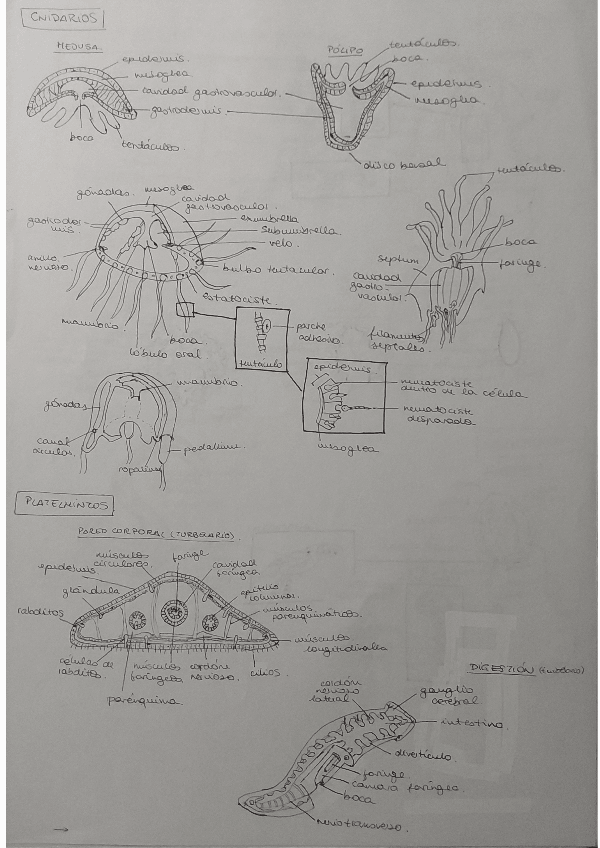 CNIDARIOS
MEDUSA
epidermis
mesoglea
cavidad gastrovascular
gastrodermis
boca
tentáculos
PÓLIPO
tentáculos
boca
epidermis
mesoglia
disco basal
gónadas
mesoglea
cavidad
gastrovascular
gastroder
mis
exumbrella
subumbrella
velo
anillo
nervioso
bulbo tentacular
estatociste
manubrio
boca
lóbulo oral
tentáculos
boca
faringe
septum
cavidad
gastro-
vascular
filamentos
septales
parche
adhesivo
tentáculo
epidermis
nematociste
dentro de la célula
nematociste
disparado
mesoglea
manubrio
gónadas
canal
pedalium
ropalium
PLATELMINTOS
PARED CORPORAL (TURBELARIO)
músculos
circulares
faringe
cavidad
faríngea
epidermis
glándula
rabditos
epitelio
columnar
músculos
parenquimáticos
músculos
longitudinales
células de
rabditos
músculos
faríngeos
cordón
nervioso
cilios
parénquima
DIGESTIÓN
cordón
nervioso
lateral
ganglio
cerebral
intestino
divertículo
faringe
cámara faríngea
boca
nervio transverso